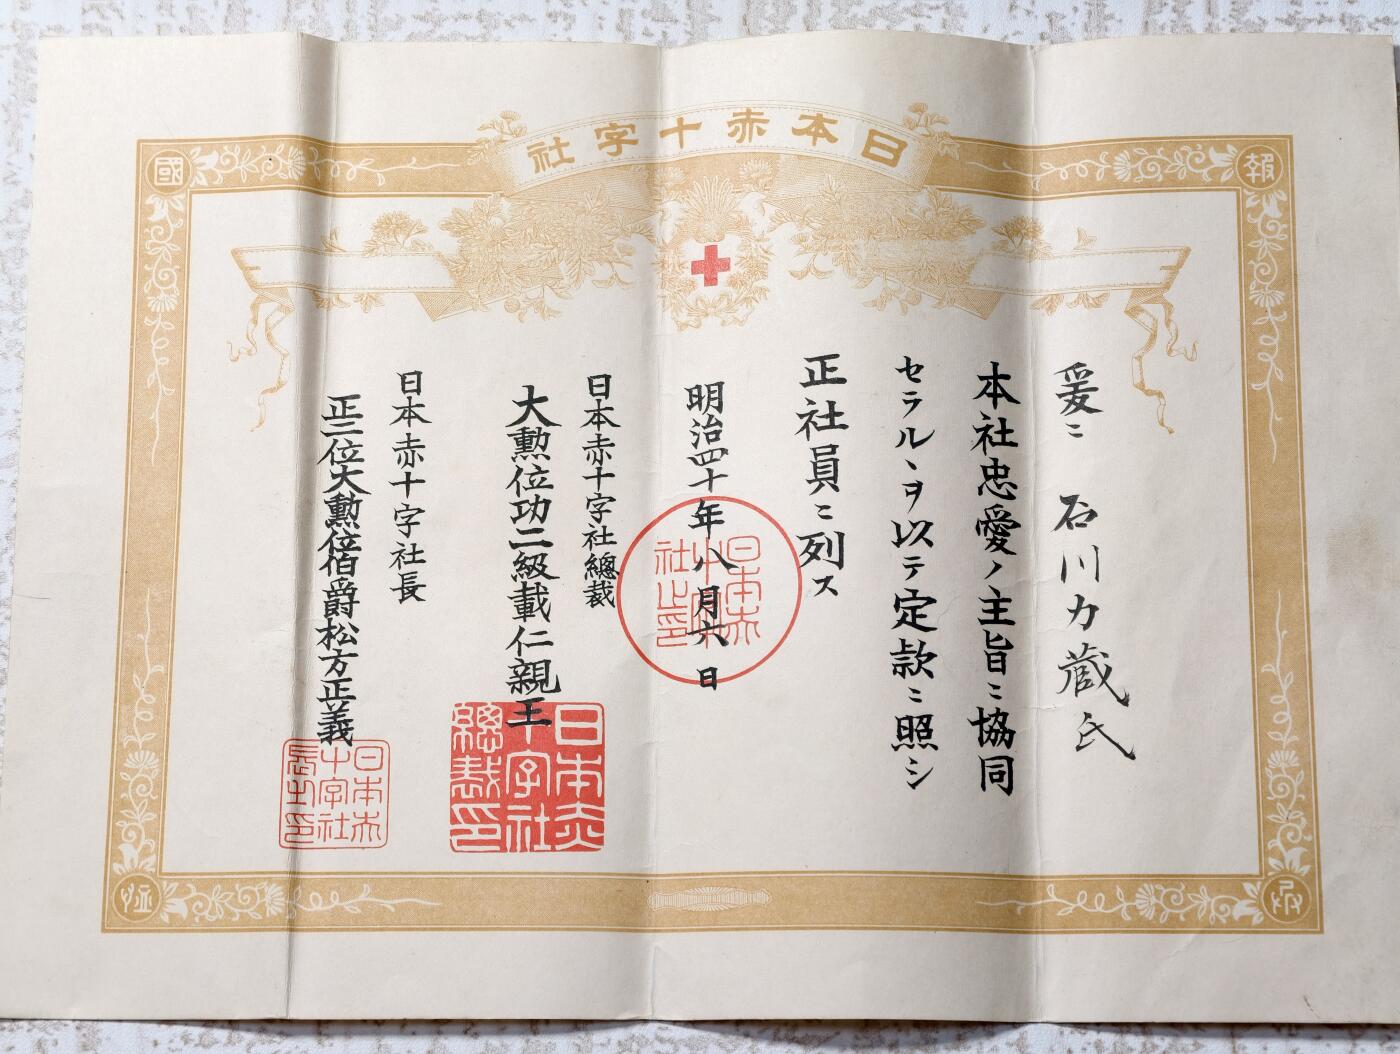 日本赤十字社
報
國
恤
兵
爰ニ 石川力蔵氏
本社忠愛ノ主旨ニ協同
セラルヽヲ以テ定款ニ照シ
正社員ニ列ス
明治四十年八月六日
日本赤十字社之印
日本赤十字社總裁
大勲位功二級載仁親王
日本赤十字社總裁印
日本赤十字社長
正二位大勲位伯爵松方正義
日本赤十字社長之印